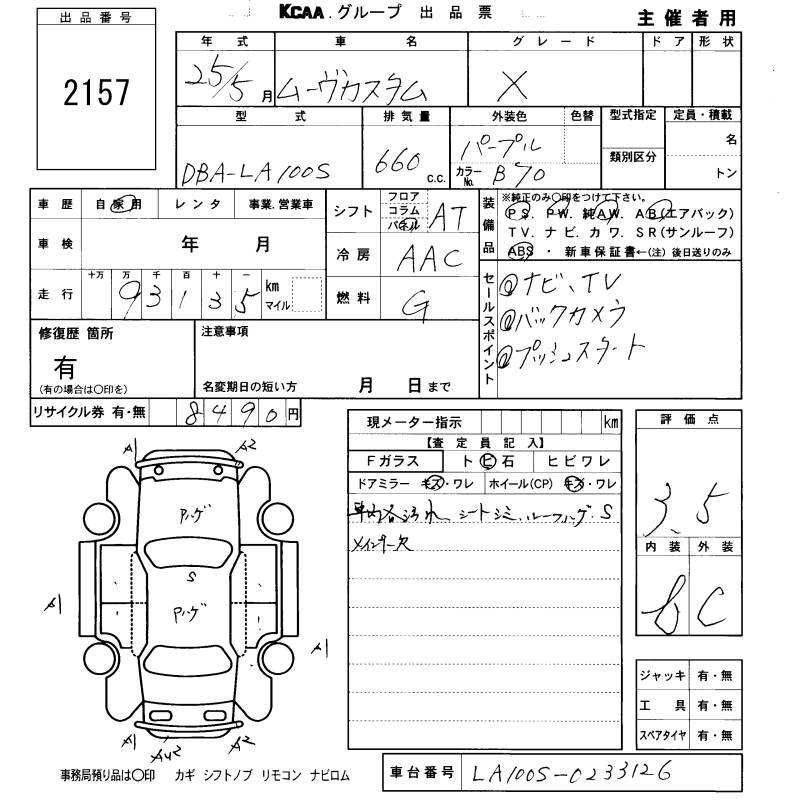 KCAA.グループ 出品票
主催者用
出品番号
2157
年式 車名 グレード ドア 形状
25/5月 ムーヴカスタム X
型式 排気量 外装色 色替 型式指定 定員・積載
DBA-LA100S 660 c.c. パープル 名
カラーNo. B70 類別区分 トン
車歴 自家用 レンタ 事業.営業車
車検 年 月
走行 十万 万 千 百 十 一
93135 km マイル
シフト フロア コラム パネル AT
冷房 AAC
燃料 G
装備品 ※純正のみ○印をつけて下さい。
PS. PW. 純AW. AB(エアバック)
TV. ナビ. カワ. SR(サンルーフ)
ABS ・ 新車保証書←(注) 後日送りのみ
セールスポイント
ナビ、TV
バックカメラ
プッシュスタート
修復歴 箇所
有
(有の場合は○印を)
注意事項
名変期日の短い方 月 日まで
リサイクル券 有・無 8490円
現メーター指示 km
【査定員記入】
Fガラス ト ビ 石 ヒビワレ
ドアミラー キズ・ワレ ホイール(CP) キズ・ワレ
シートシミ、ルーフハゲ.S
評価点
3.5
内装 外装
b C
A1 A2
Aハゲ
S
Aハゲ
A1 A1
A1 A2
ジャッキ 有・無
工具 有・無
スペアタイヤ 有・無
事務局預り品は○印 カギ シフトノブ リモコン ナビロム
車台番号 LA100S-0233126